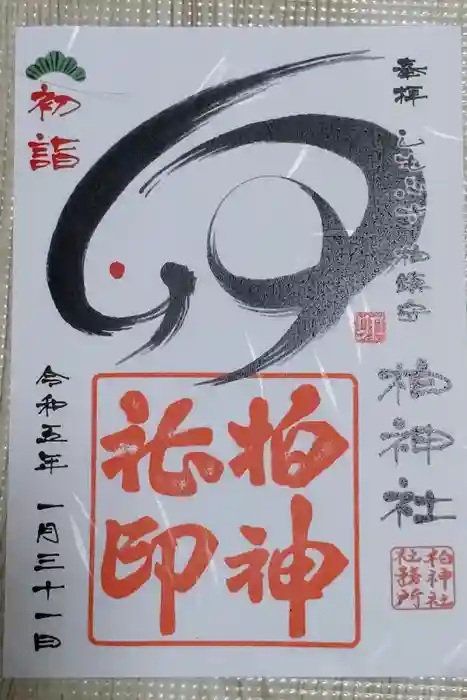 奉拝
柏鎮守
柏神社
柏神社
社務所
卯
柏神
社印
初詣
令和五年 一月三十一日